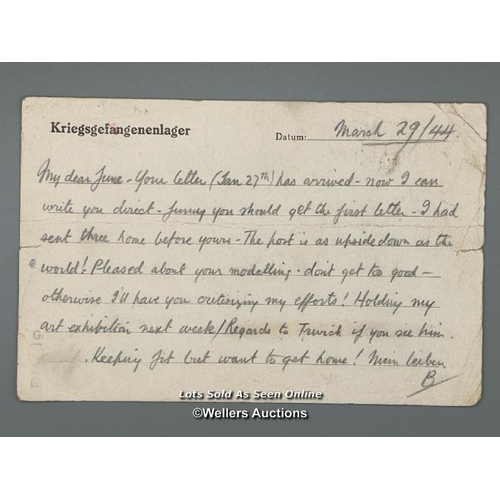 Kriegsgefangenenlager
Datum: March 29/44.
My dear June - Your letter (Jan 27th) has arrived - now I can
write you direct - funny you should get the first letter - I had
sent three home before yours - The post is as upside down as the
world! Pleased about your modelling - don't get too good -
otherwise I'll have you criticizing my efforts! Holding my
art exhibition next week / Regards to if you see him.
Keeping fit but want to get home! Mein
B
Lots Sold As Seen Online
©Wellers Auctions